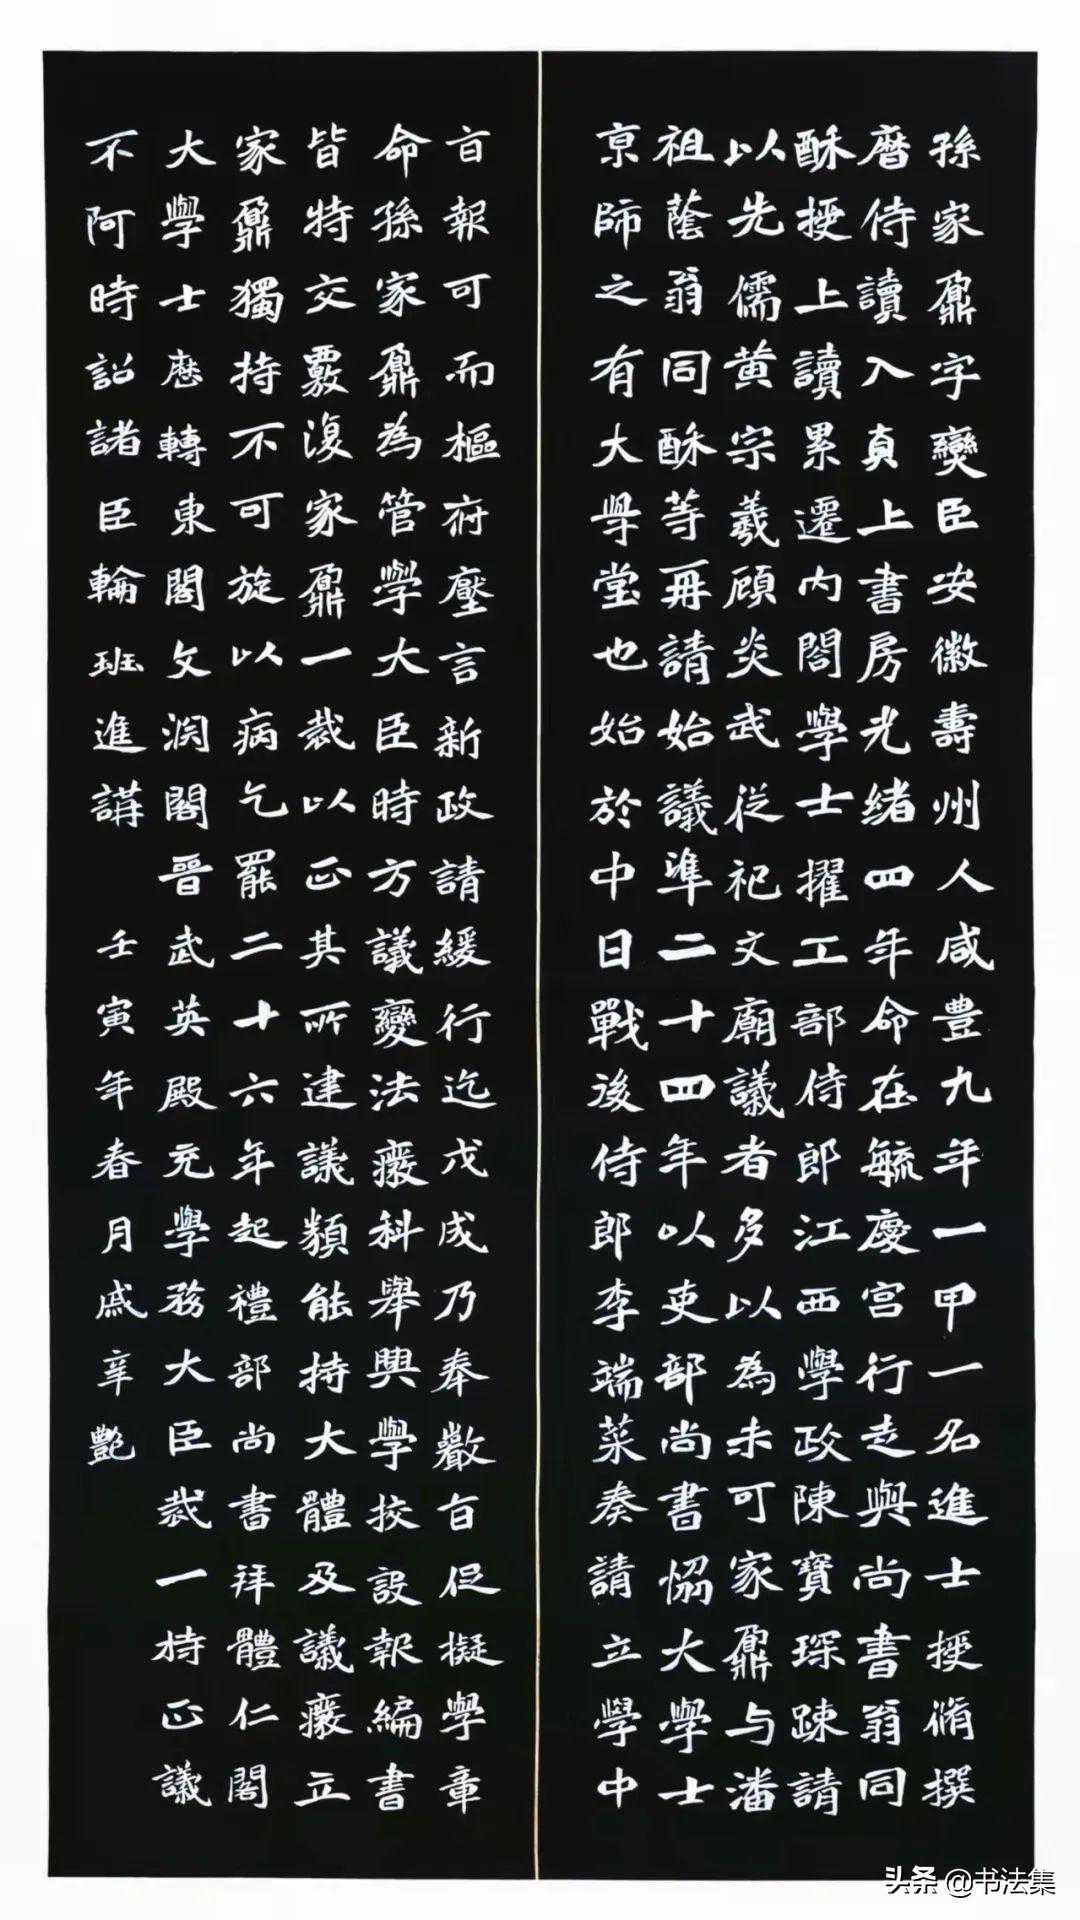 孫家鼐字燮臣安徽壽州人咸豊九年一甲一名進士授脩撰
曆侍讀入直上書房光緒四年命在毓慶宮行走與尚書翁同
龢授上讀累遷內閣學士擢工部侍郎江西學政陳寶琛疎請
以先儒黄宗羲顧炎武從祀文廟議者多以為未可家鼐与潘
祖蔭翁同龢等再請始議準二十四年以吏部尚書恊大學士
京師之有大學堂也始於中日戰後侍郎李端棻奏請立學中
旨報可而樞府壓言新政請緩行迄戊戌乃奉嚴旨促擬學章
命孫家鼐為管學大臣時方議變法廢科舉興學挍設報編書
皆特交覈復家鼐一裁以正其所建議類能持大體及議廢立
家鼐獨持不可旋以病乞罷二十六年起禮部尚書拜體仁閣
大學士歷轉東閣文淵閣晉武英殿充學務大臣裁一持正議
不阿時詔諸臣輪班進講 壬寅年春月戚辛艷
头条 @书法集